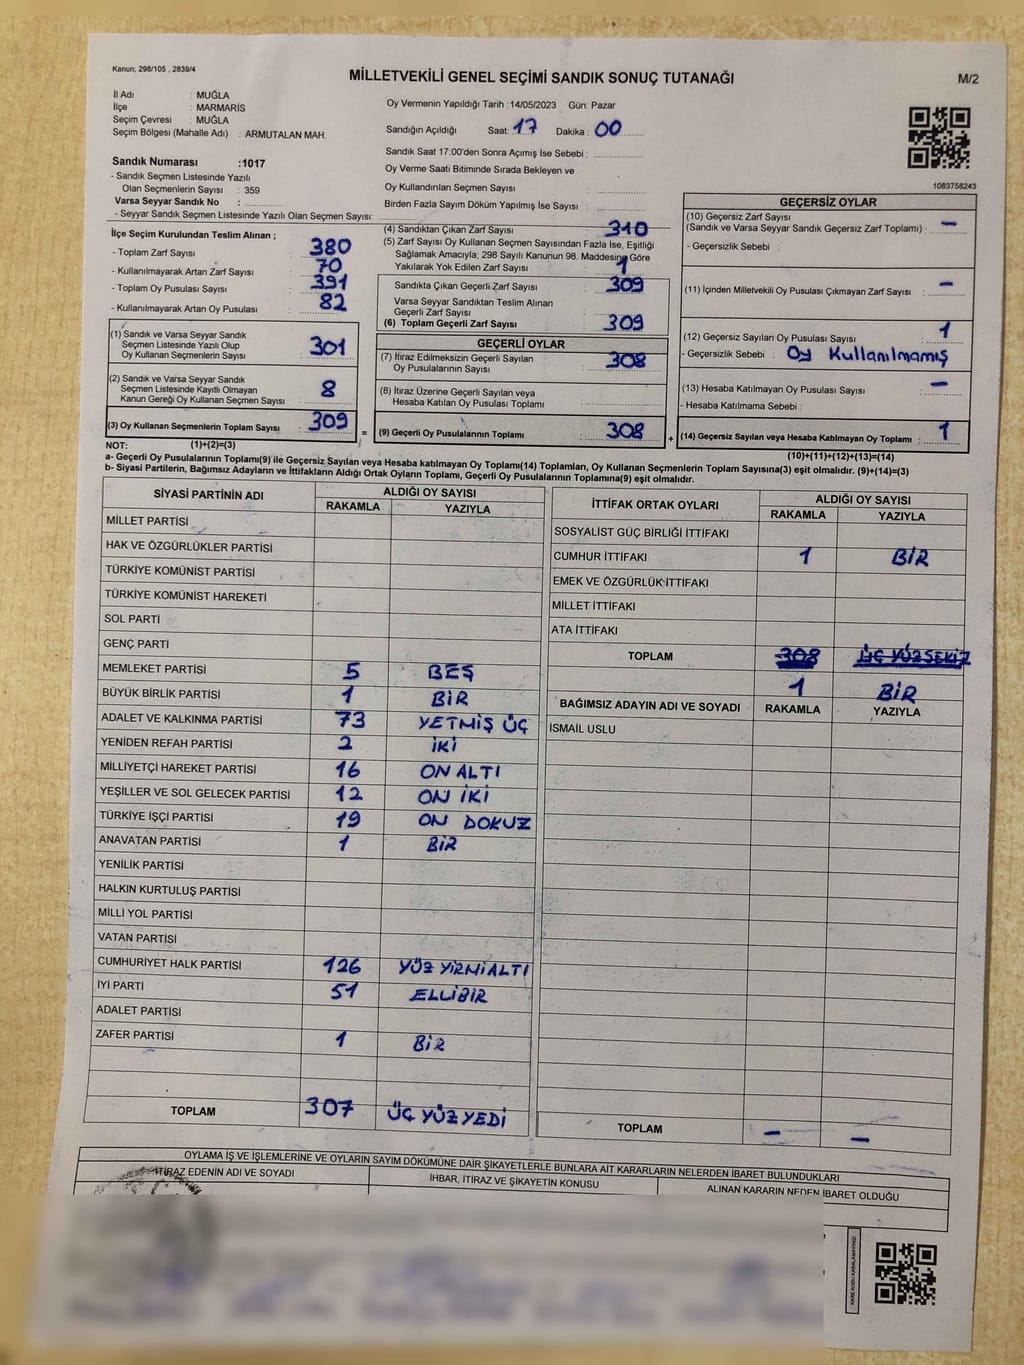 Kanun; 298/105 , 2839/4
MİLLETVEKİLİ GENEL SEÇİMİ SANDIK SONUÇ TUTANAĞI
M/2
İl Adı : MUĞLA
İlçe : MARMARİS
Seçim Çevresi : MUĞLA
Seçim Bölgesi (Mahalle Adı) : ARMUTALAN MAH.
Sandık Numarası :1017
- Sandık Seçmen Listesinde Yazılı
Olan Seçmenlerin Sayısı : 359
Varsa Seyyar Sandık No :
- Seyyar Sandık Seçmen Listesinde Yazılı Olan Seçmen Sayısı:
Oy Vermenin Yapıldığı Tarih :14/05/2023 Gün: Pazar
Sandığın Açıldığı Saat: 17 Dakika: 00
Sandık Saat 17:00'den Sonra Açımış İse Sebebi :
Oy Verme Saati Bitiminde Sırada Bekleyen ve
Oy Kullandırılan Seçmen Sayısı :
Birden Fazla Sayım Döküm Yapılmış İse Sayısı :
1083758243
İlçe Seçim Kurulundan Teslim Alınan ;
- Toplam Zarf Sayısı : 380
- Kullanılmayarak Artan Zarf Sayısı : 70
- Toplam Oy Pusulası Sayısı : 391
- Kullanılmayarak Artan Oy Pusulası : 82
(1) Sandık ve Varsa Seyyar Sandık
Seçmen Listesinde Yazılı Olup
Oy Kullanan Seçmenlerin Sayısı : 301
(2) Sandık ve Varsa Seyyar Sandık
Seçmen Listesinde Kayıtlı Olmayan
Kanun Gereği Oy Kullanan Seçmen Sayısı : 8
(3) Oy Kullanan Seçmenlerin Toplam Sayısı : 309
(4) Sandıktan Çıkan Zarf Sayısı : 310
(5) Zarf Sayısı Oy Kullanan Seçmen Sayısından Fazla İse, Eşitliği
Sağlamak Amacıyla; 298 Sayılı Kanunun 98. Maddesine Göre
Yakılarak Yok Edilen Zarf Sayısı : 1
Sandıkta Çıkan Geçerli Zarf Sayısı : 309
Varsa Seyyar Sandıktan Teslim Alınan
Geçerli Zarf Sayısı :
(6) Toplam Geçerli Zarf Sayısı : 309
GEÇERLİ OYLAR
(7) İtiraz Edilmeksizin Geçerli Sayılan
Oy Pusulalarının Sayısı : 308
(8) İtiraz Üzerine Geçerli Sayılan veya
Hesaba Katılan Oy Pusulası Toplamı :
= (9) Geçerli Oy Pusulalarının Toplamı : 308
GEÇERSİZ OYLAR
(10) Geçersiz Zarf Sayısı
(Sandık ve Varsa Seyyar Sandık Geçersiz Zarf Toplamı) : –
- Geçersizlik Sebebi :
(11) İçinden Milletvekili Oy Pusulası Çıkmayan Zarf Sayısı : –
(12) Geçersiz Sayılan Oy Pusulası Sayısı : 1
- Geçersizlik Sebebi : Oy Kullanılmamış
(13) Hesaba Katılmayan Oy Pusulası Sayısı : –
- Hesaba Katılmama Sebebi :
+ (14) Geçersiz Sayılan veya Hesaba Katılmayan Oy Toplamı : 1
NOT: (1)+(2)=(3)
(10)+(11)+(12)+(13)=(14)
a- Geçerli Oy Pusulası Toplamı(9) ile Geçersiz Sayılan veya Hesaba katılmayan Oy Toplamı(14) Toplamları, Oy Kullanan Seçmenlerin Toplam Sayısına(3) eşit olmalıdır. (9)+(14)=(3)
b- Siyasi Partilerin, Bağımsız Adayların ve İttifakların Aldığı Ortak Oyların Toplamı, Geçerli Oy Pusulalarının Toplamına(9) eşit olmalıdır.
SİYASİ PARTİNİN ADI ALDIĞI OY SAYISI
RAKAMLA YAZIYLA
MİLLET PARTİSİ
HAK VE ÖZGÜRLÜKLER PARTİSİ
TÜRKİYE KOMÜNİST PARTİSİ
TÜRKİYE KOMÜNİST HAREKETİ
SOL PARTİ
GENÇ PARTİ
MEMLEKET PARTİSİ 5 BEŞ
BÜYÜK BİRLİK PARTİSİ 1 BİR
ADALET VE KALKINMA PARTİSİ 73 YETMİŞ ÜÇ
YENİDEN REFAH PARTİSİ 2 İKİ
MİLLİYETÇİ HAREKET PARTİSİ 16 ON ALTI
YEŞİLLER VE SOL GELECEK PARTİSİ 12 ON İKİ
TÜRKİYE İŞÇİ PARTİSİ 19 ON DOKUZ
ANAVATAN PARTİSİ 1 BİR
YENİLİK PARTİSİ
HALKIN KURTULUŞ PARTİSİ
MİLLİ YOL PARTİSİ
VATAN PARTİSİ
CUMHURİYET HALK PARTİSİ 126 YÜZ YİRMİALTI
İYİ PARTİ 51 ELLİBİR
ADALET PARTİSİ
ZAFER PARTİSİ 1 BİR
TOPLAM 307 ÜÇ YÜZ YEDİ
İTTİFAK ORTAK OYLARI ALDIĞI OY SAYISI
RAKAMLA YAZIYLA
SOSYALİST GÜÇ BİRLİĞİ İTTİFAKI
CUMHUR İTTİFAKI 1 BİR
EMEK VE ÖZGÜRLÜK İTTİFAKI
MİLLET İTTİFAKI
ATA İTTİFAKI
TOPLAM 308 ÜÇ YÜZSEKİZ
1 BİR
BAĞIMSIZ ADAYIN ADI VE SOYADI RAKAMLA YAZIYLA
İSMAİL USLU
TOPLAM – –
OYLAMA İŞ VE İŞLEMLERİNE VE OYLARIN SAYIM DÖKÜMÜNE DAİR ŞİKAYETLERLE BUNLARA AİT KARARLARIN NELERDEN İBARET BULUNDUKLARI
İTİRAZ EDENİN ADI VE SOYADI
İHBAR, İTİRAZ VE ŞİKAYETİN KONUSU
ALINAN KARARIN NEDEN İBARET OLDUĞU
KARE KODU KARALAMAYINIZ!